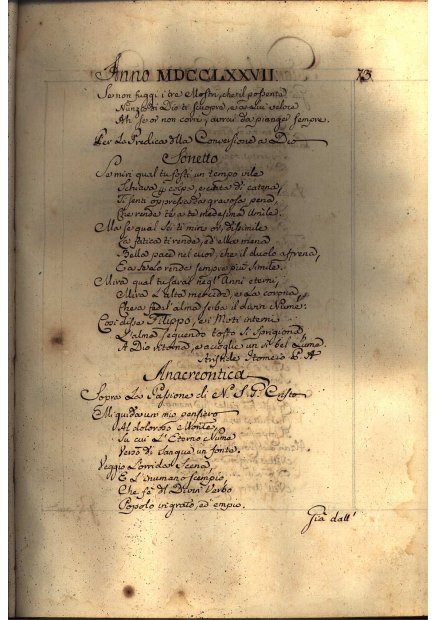 Anno MDCCLXXVII. 73
Se non fuggi i tre Mostri, che il possente
Nunzio di Dio ti scuopre, e a lui veloce
Ah se or non corri, avrai da pianger sempre.
Per la Predica della Conversione a Dio
Sonetto
Se miri qual tu fosti un tempo vile
Schiava p colpa, e cinta di catena,
Ti senti oppressa da gravosa pena,
Che rende te a te medesima umile.
Ma se qual sei ti miri or, dissimile
La fatica ti rende, ed ella mena
Bella pace nel cuor, che il duolo affrena,
E a se lo rende sempre più simile.
Mira qual tu sarai negl' Anni eterni,
Mira l'alta mercede, e la corona,
Che a fedel alma serba il divin Nume.
Così disse Filippo, e i Moti interni
L'alma seguendo tosto si sprigiona,
A Dio ritorna, e accoglie un sì bel Lume.
P. A.
Anacreontica
Sopra la Passione di N. S. G. Cristo
Mi guida un mio pensiero
Al doloroso Monte,
Su cui l'Eterno Nume
Versò di sangue un fonte.
Veggio l'orrida Scena
E l'inumano scempio,
Che fè del Divin Verbo
Popolo ingrato, ed empio.
Già dall'